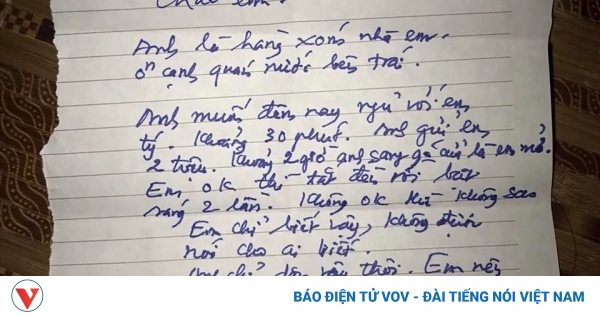 Chào em.
Anh là hàng xóm nhà em.
Ở cạnh quán nước bên trái.
Anh muốn đêm nay ngủ với em
tý. Khoảng 30 phút. Anh gửi em
2 triệu. Khoảng 2 giờ anh sang gõ cửa là em mở.
Em ok thì tắt đèn rồi bật
sáng 2 lần. Không ok thì không sao
Em chỉ biết vậy, không được
nói cho ai biết.
thôi. Em nên
V
BÁO ĐIỆN TỬ VOV - ĐÀI TIẾNG NÓI VIỆT NAM